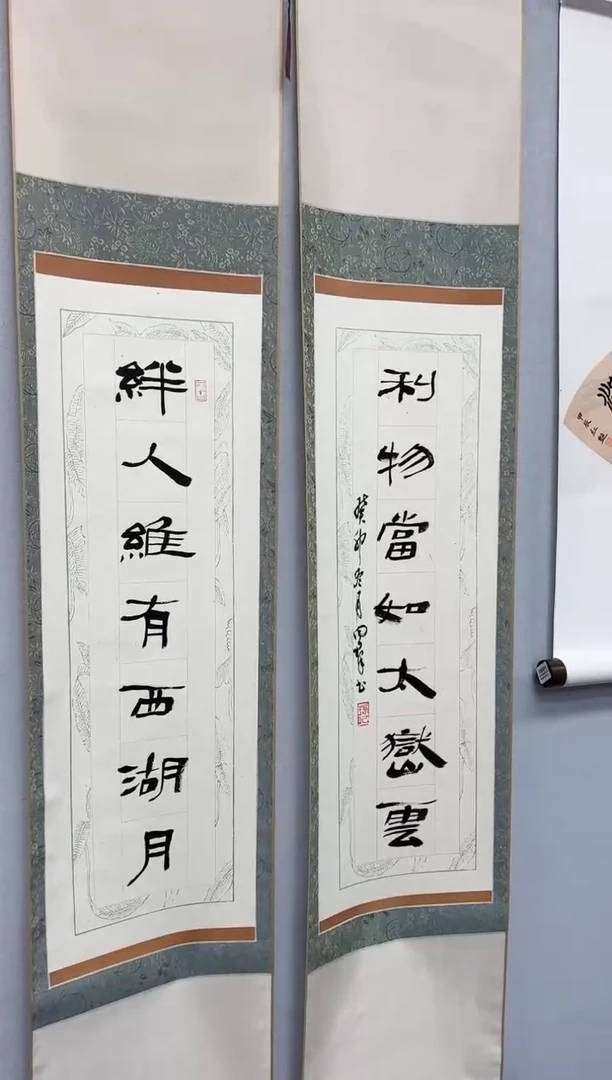 絆人維有西湖月
利物當如太嶽雲
癸卯冬月
甲辰